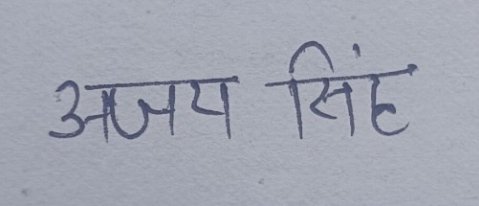 अजय सिंह